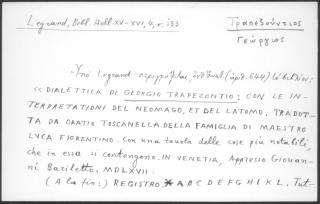 Legrand, Bibl. Hell. XV-XVI, 4, σ. 133
Τραπεζούντιος
Γεώργιος
Ὑπὸ Legrand περιγράφεται, (ἀριθ. 644)
« DIALETTICA DI GEORGIO TRAPEZONTIO; CON LE IN-
TERPRETATIONI DEL NEOMAGO, ET DEL LATOMO. TRADOT-
TA DA ORATIO TOSCANELLA DELLA FAMIGLIA DI MAESTRO
LUCA FIORENTINO. Con una tavola delle cose più notabili,
che in essa si contengono. IN VENETIA, Appresso Giouan-
ni Bariletto. MDLXVII.
(A la fin:) REGISTRO. *A B C D E F G H I K L. Tut-